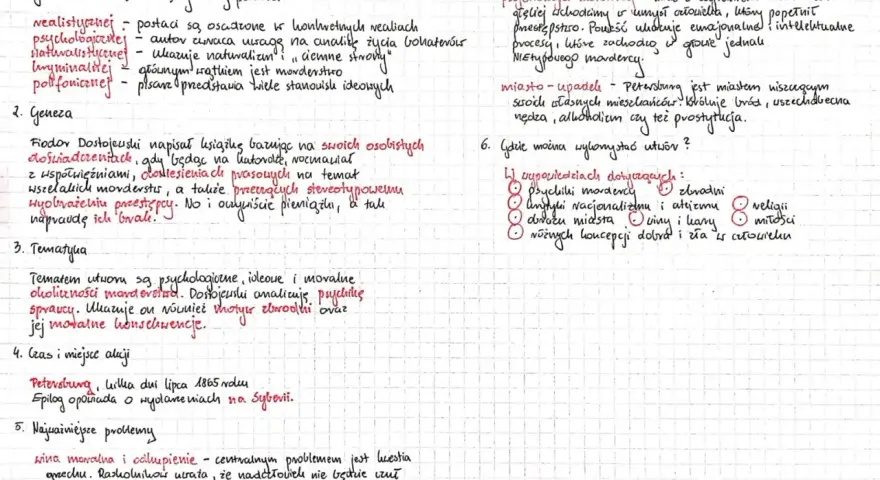 realistycznej – postaci są osadzone w konkretnych realiach
psychologicznej – autor zwraca uwagę na analizę życia bohaterów
naturalistycznej – ukazuje naturalizm i „ciemne strony"
kryminalnej – głównym wątkiem jest morderstwo
polifonicznej – pisarz przedstawia wiele stanowisk ideowych
2. Geneza
Fiodor Dostojewski napisał książkę bazując na swoich osobistych
doświadczeniach, gdy będąc na katordze, rozmawiał
z współwięźniami, doniesieniach prasowych na temat
wszelakich morderstw, a także przeczących stereotypowemu
wyobrażeniu przestępcy. No i oczywiście pieniążki, a tak
naprawdę ich brak.
3. Tematyka
Tematem utworu są psychologiczne, ideowe i moralne
okoliczności morderstwa. Dostojewski analizuje psychikę
sprawcy. Ukazuje on również motyw zbrodni oraz
jej moralne konsekwencje.
4. Czas i miejsce akcji
Petersburg, kilka dni lipca 1865 roku
Epilog opowiada o wydarzeniach na Syberii.
5. Najważniejsze problemy
wina moralna i odkupienie – centralnym problemem jest kwestia
grzechu. Raskolnikow uważa, że nadczłowiek nie będzie czuł
głębiej wchodzimy w umysł człowieka, który popełnił
przestępstwo. Powieść ukazuje emocjonalne i intelektualne
procesy, które zachodzą w głowie jednak
NIEtypowego mordercy.
miasto – upadek – Petersburg jest miastem niszczącym
swoich własnych mieszkańców. Króluje bród, wszechobecna
nędza, alkoholizm czy też prostytucja.
6. Gdzie można wykorzystać utwór?
W wypowiedziach dotyczących:
psychiki mordercy zbrodni
krytyki racjonalizmu i ateizmu religii
obrazu miasta winy i kary miłości
różnych koncepcji dobra i zła w człowieku